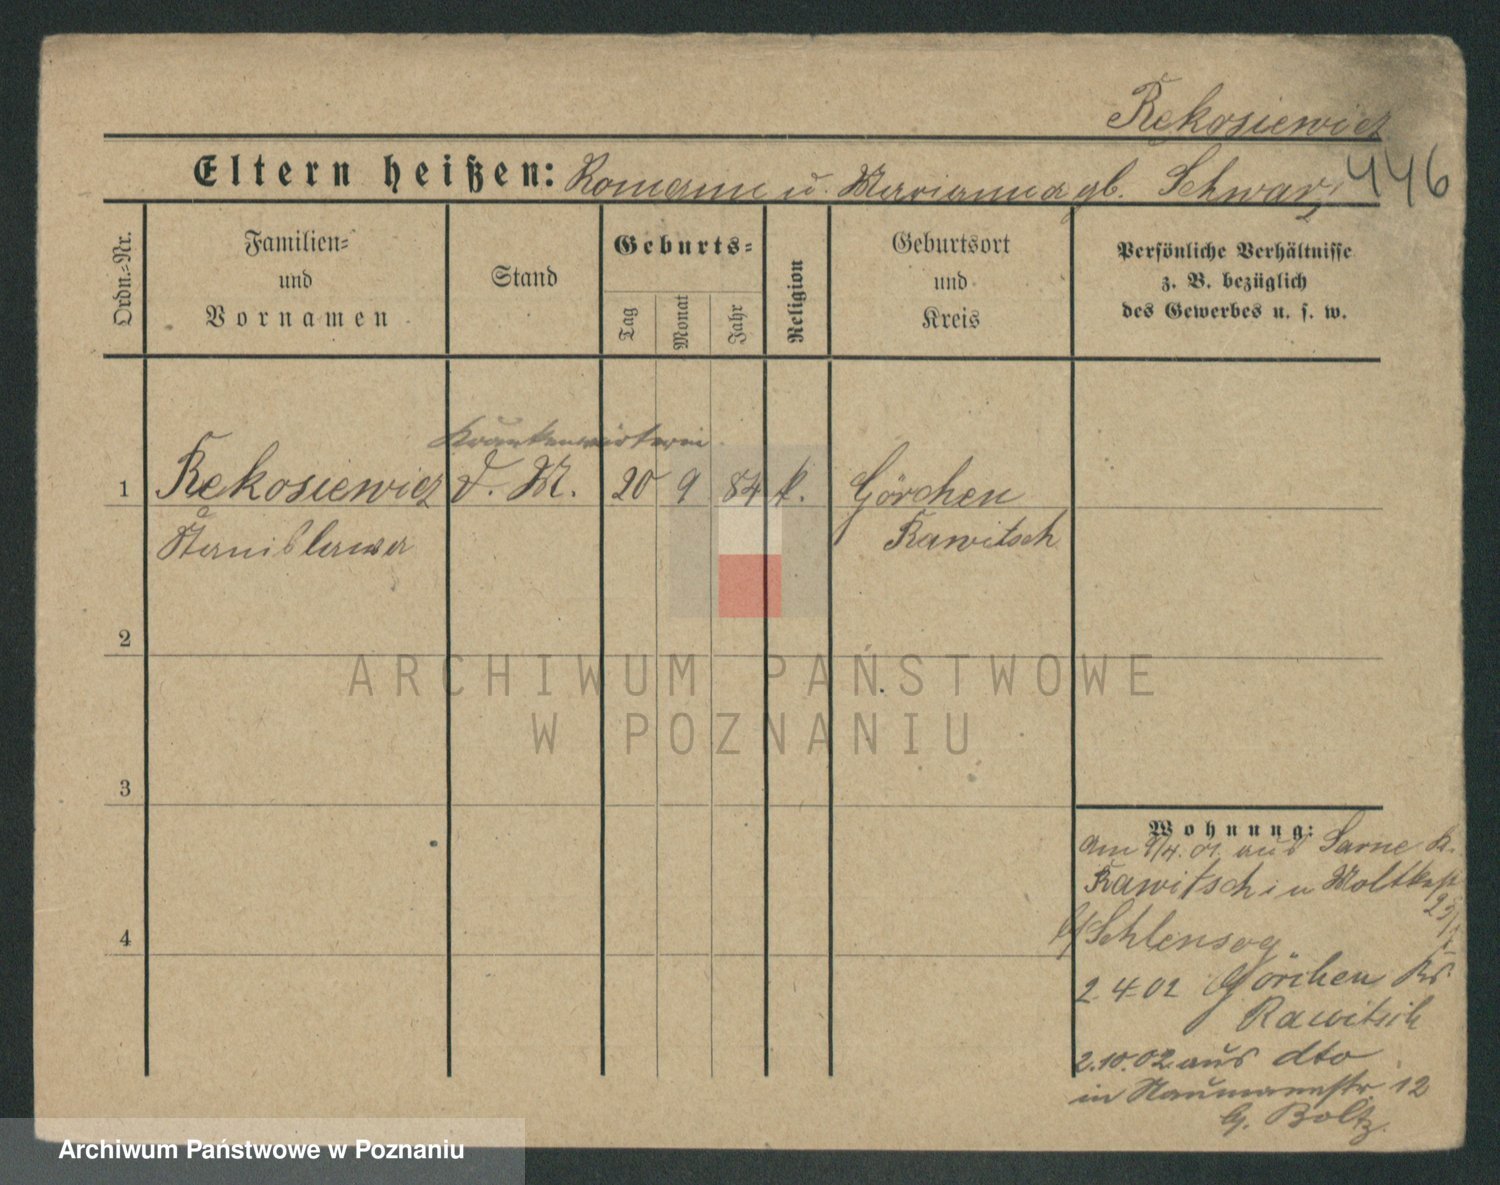 Rekosiewicz
446
Eltern heißen: Romann u. Marianna gb. Schwarz
Ordn.-Nr.
Familien-
und
Vornamen
Stand
Geburts-
Tag
Monat
Jahr
Religion
Geburtsort
und
Kreis
Persönliche Verhältnisse
z. B. bezüglich
des Gewerbes u. s. w.
Krankenwärterin
1 Rekosiewicz D. M. 20 9 84 k. Görchen
Stanislawa Rawitsch
2
ARCHIWUM PAŃSTWOWE
W POZNANIU
3
Wohnung:
am 9/4.01. aus Sarne K.
Rawitsch in Moltkestr
b/Schlensog
4
2.4.02 Görchen Kr.
Rawitsch
2.10.02 aus dto
in Naumannstr. 12
b. Boltz.
Archiwum Państwowe w Poznaniu